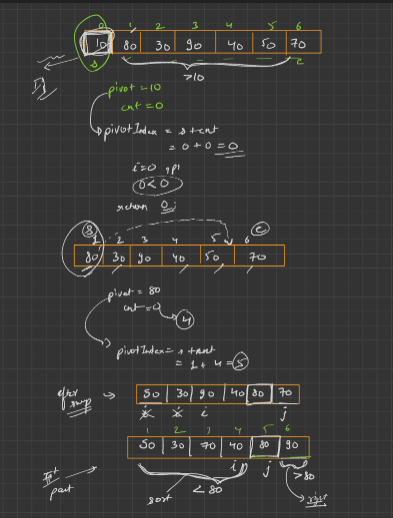 0 1 2 3 4 5 6
10 80 30 90 40 50 70
s e
>10
pivot = 10
cnt = 0
pivotIndex = s + cnt
= 0 + 0 = 0
i=0, pI
0<0
return 0;
s e
1 2 3 4 5 6
80 30 90 40 50 70
pivot = 80
cnt = 0 4
pivotIndex = s + cnt
= 1 + 4 = 5
after swap
50 30 90 40 80 70
i i i j
1 2 3 4 5 6
50 30 70 40 80 90
i j
part
sort < 80 > 80
right